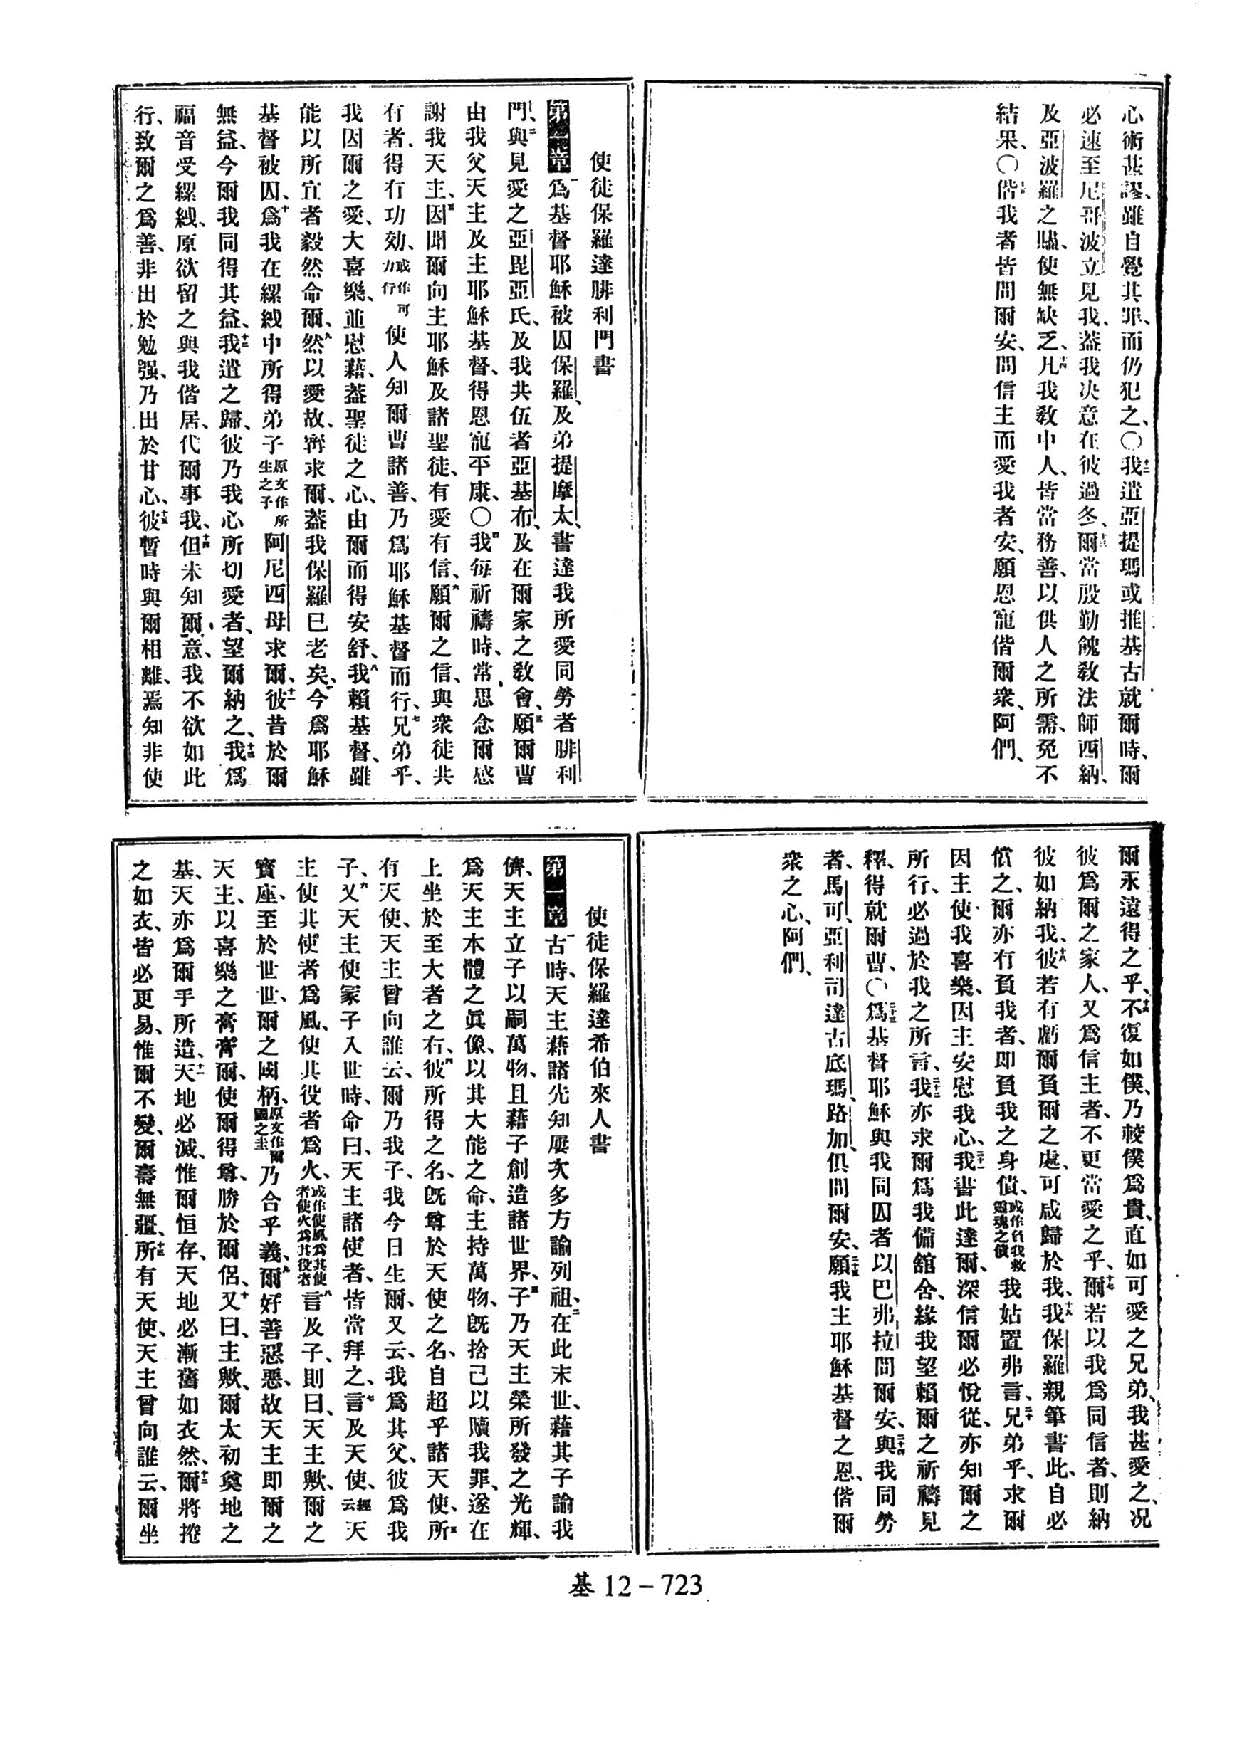 心術甚謬、雖自覺其罪、而仍犯之、〇我遣亞提瑪或推基古就爾時、爾
必速至尼哥波立見我、蓋我決意在彼過冬、爾當殷勤餽敎法師西納、
及亞波羅之贐、使無缺乏、凡我敎中人、皆當務善、以供人之所需、免不
結果〇偕我者皆問爾安、問信主而愛我者安、願恩寵偕爾衆、阿們、
使徒保羅達腓利門書
爲基督耶穌被囚保羅、及弟提摩太、書達我所愛同勞者腓利
門、與見愛之亞毘亞氏、及我共伍者亞基布、及在爾家之敎會、願爾曹
由我父天主及主耶穌基督、得恩寵平康、〇我每祈禱時、常思念爾、感
謝我天主、因聞爾向主耶穌及諸聖徒、有愛有信、願爾之信、與衆徒共
有者、得有功効、或作可力行使人知爾曹諸善、乃爲耶穌基督而行、兄弟乎、
我因爾之愛、大喜樂、並慰藉、蓋聖徒之心、由爾而得安舒、我賴基督、雖
能以所宜者毅然命爾、然以愛故、寗求爾、蓋我保羅已老矣、今爲耶穌
基督被囚、爲我在縲絏中所得弟子原文作所生之子阿尼西母求爾、彼昔於爾
無益、今爾我同得其益、我遣之歸、彼乃我心所切愛者、望爾納之、我爲
福音受縲絏、原欲留之與我偕居、代爾事我、但未知爾意、我不欲如此
行、致爾之爲善、非出於勉强、乃出於甘心、彼暫時與爾相離、焉知非使
爾永遠得之乎、不復如僕、乃較僕爲貴、直如可愛之兄弟、我甚愛之、况
彼爲爾之家人、又爲信主者、不更當愛之乎、爾若以我爲同信者、則納
彼如納我、彼若有虧爾負爾之處、可咸歸於我、我保羅親筆書此、自必
償之、爾亦有負我者、即負我之身債、我姑置弗言、兄弟乎、求爾
因主使我喜樂、因主安慰我心、我書此達爾、深信爾必悅從、亦知爾之
所行、必過於我之所言、我亦求爾爲我備舘舍、緣我望賴爾之祈禱見
釋、得就爾曹、〇爲基督耶穌與我同囚者以巴弗拉問爾安、與我同勞
者、馬可、亞利司達古、底瑪、路加、俱問爾安、願我主耶穌基督之恩、偕爾
衆之心、阿們、
使徒保羅達希伯來人書
第一章古時、天主藉諸先知屢次多方諭列祖、在此末世、藉其子諭我
儕、天主立子以嗣萬物、且藉子創造諸世界、子乃天主榮所發之光輝、
爲天主本體之眞像、以其大能之命、主持萬物、旣捨己以贖我罪、遂在
上坐於至大者之右、彼所得之名、旣尊於天使之名、自超乎諸天使、所
有天使、天主曾向誰云、爾乃我子、我今日生爾、又云、我爲其父、彼爲我
子、又天主使冢子入世時、命曰、天主諸使者、皆當拜之、言及天使、經云天
主使其使者爲風、使其役者爲火、或作使風爲其使者使火爲其役者言及子、則曰、天主歟、爾之
寶座、至於世世、爾之國柄、原文作爾國之圭乃合乎義、爾好善惡惡、故天主即爾之
天主、以喜樂之膏膏爾、使爾得尊、勝於爾侶、又曰、主歟、爾太初奠地之
基、天亦爲爾手所造、天地必滅、惟爾恒存、天地必漸舊如衣然、爾將捲
之如衣、皆必更易、惟爾不變、爾壽無疆、所有天使、天主曾向誰云、爾坐
基12－723